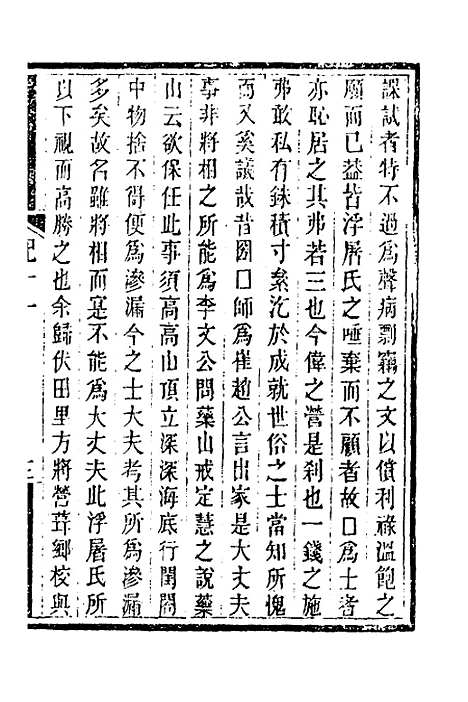 課試者特不過為聲病剽竊之文以償利祿溫飽之
願而已益皆浮屠氏之唾棄而不顧者故囗為士者
亦恥居之其弗若三也今偉之營是剎也一錢之施
弗敢私有銖積寸絫汔於成就世俗之士當知所愧
而又奚議哉昔圀囗師為崔趙公言出家是大丈夫
事非將相之所能為李文公問藥山戒定慧之說藥
山云欲保任此事須高高山頂立深深海底行閨閤
中物捨不得便為滲漏今之士大夫考其所為滲漏
多矣故名雖將相而寔不能為大丈夫此浮屠氏所
以下視而高勝之也余歸伏田里方將營葺鄉校與
記十一
三